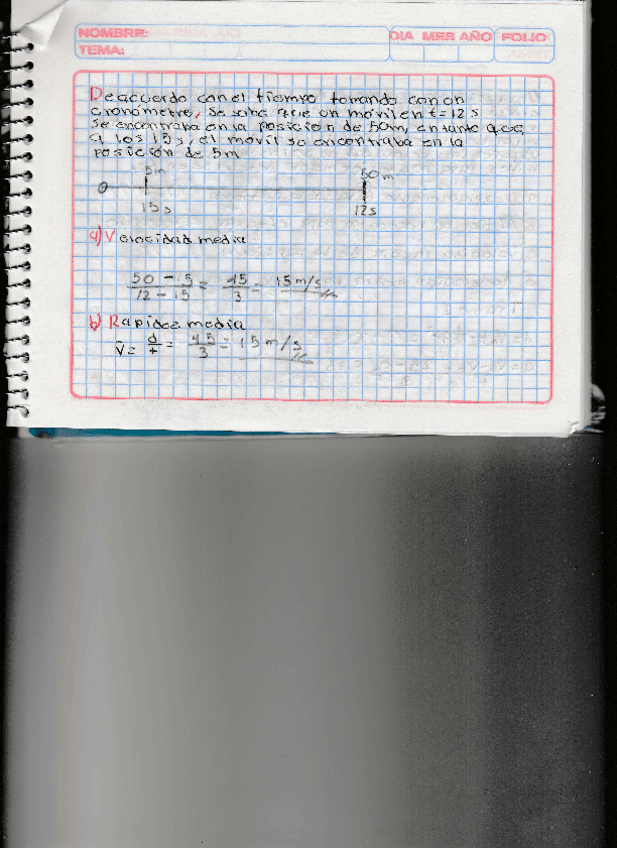 NOMBRE:
DIA MES AÑO FOLIO
TEMA:
De acuerdo con el tiempo tomando con un
cronometro, se sabe que un móvil en t = 12 s
se encontraba en la posicion de 50m, en tanto que,
a los 15 s, el móvil se encontraba en la
posición de 5m
5m 50 m
0
15 s 12 s
a) Velocidad media
50 - 15 / 12 - 15 = 45 / 3 = 15 m/s
b) Rapidez media
V̄ = d / t = 45 / 3 = 15 m/s